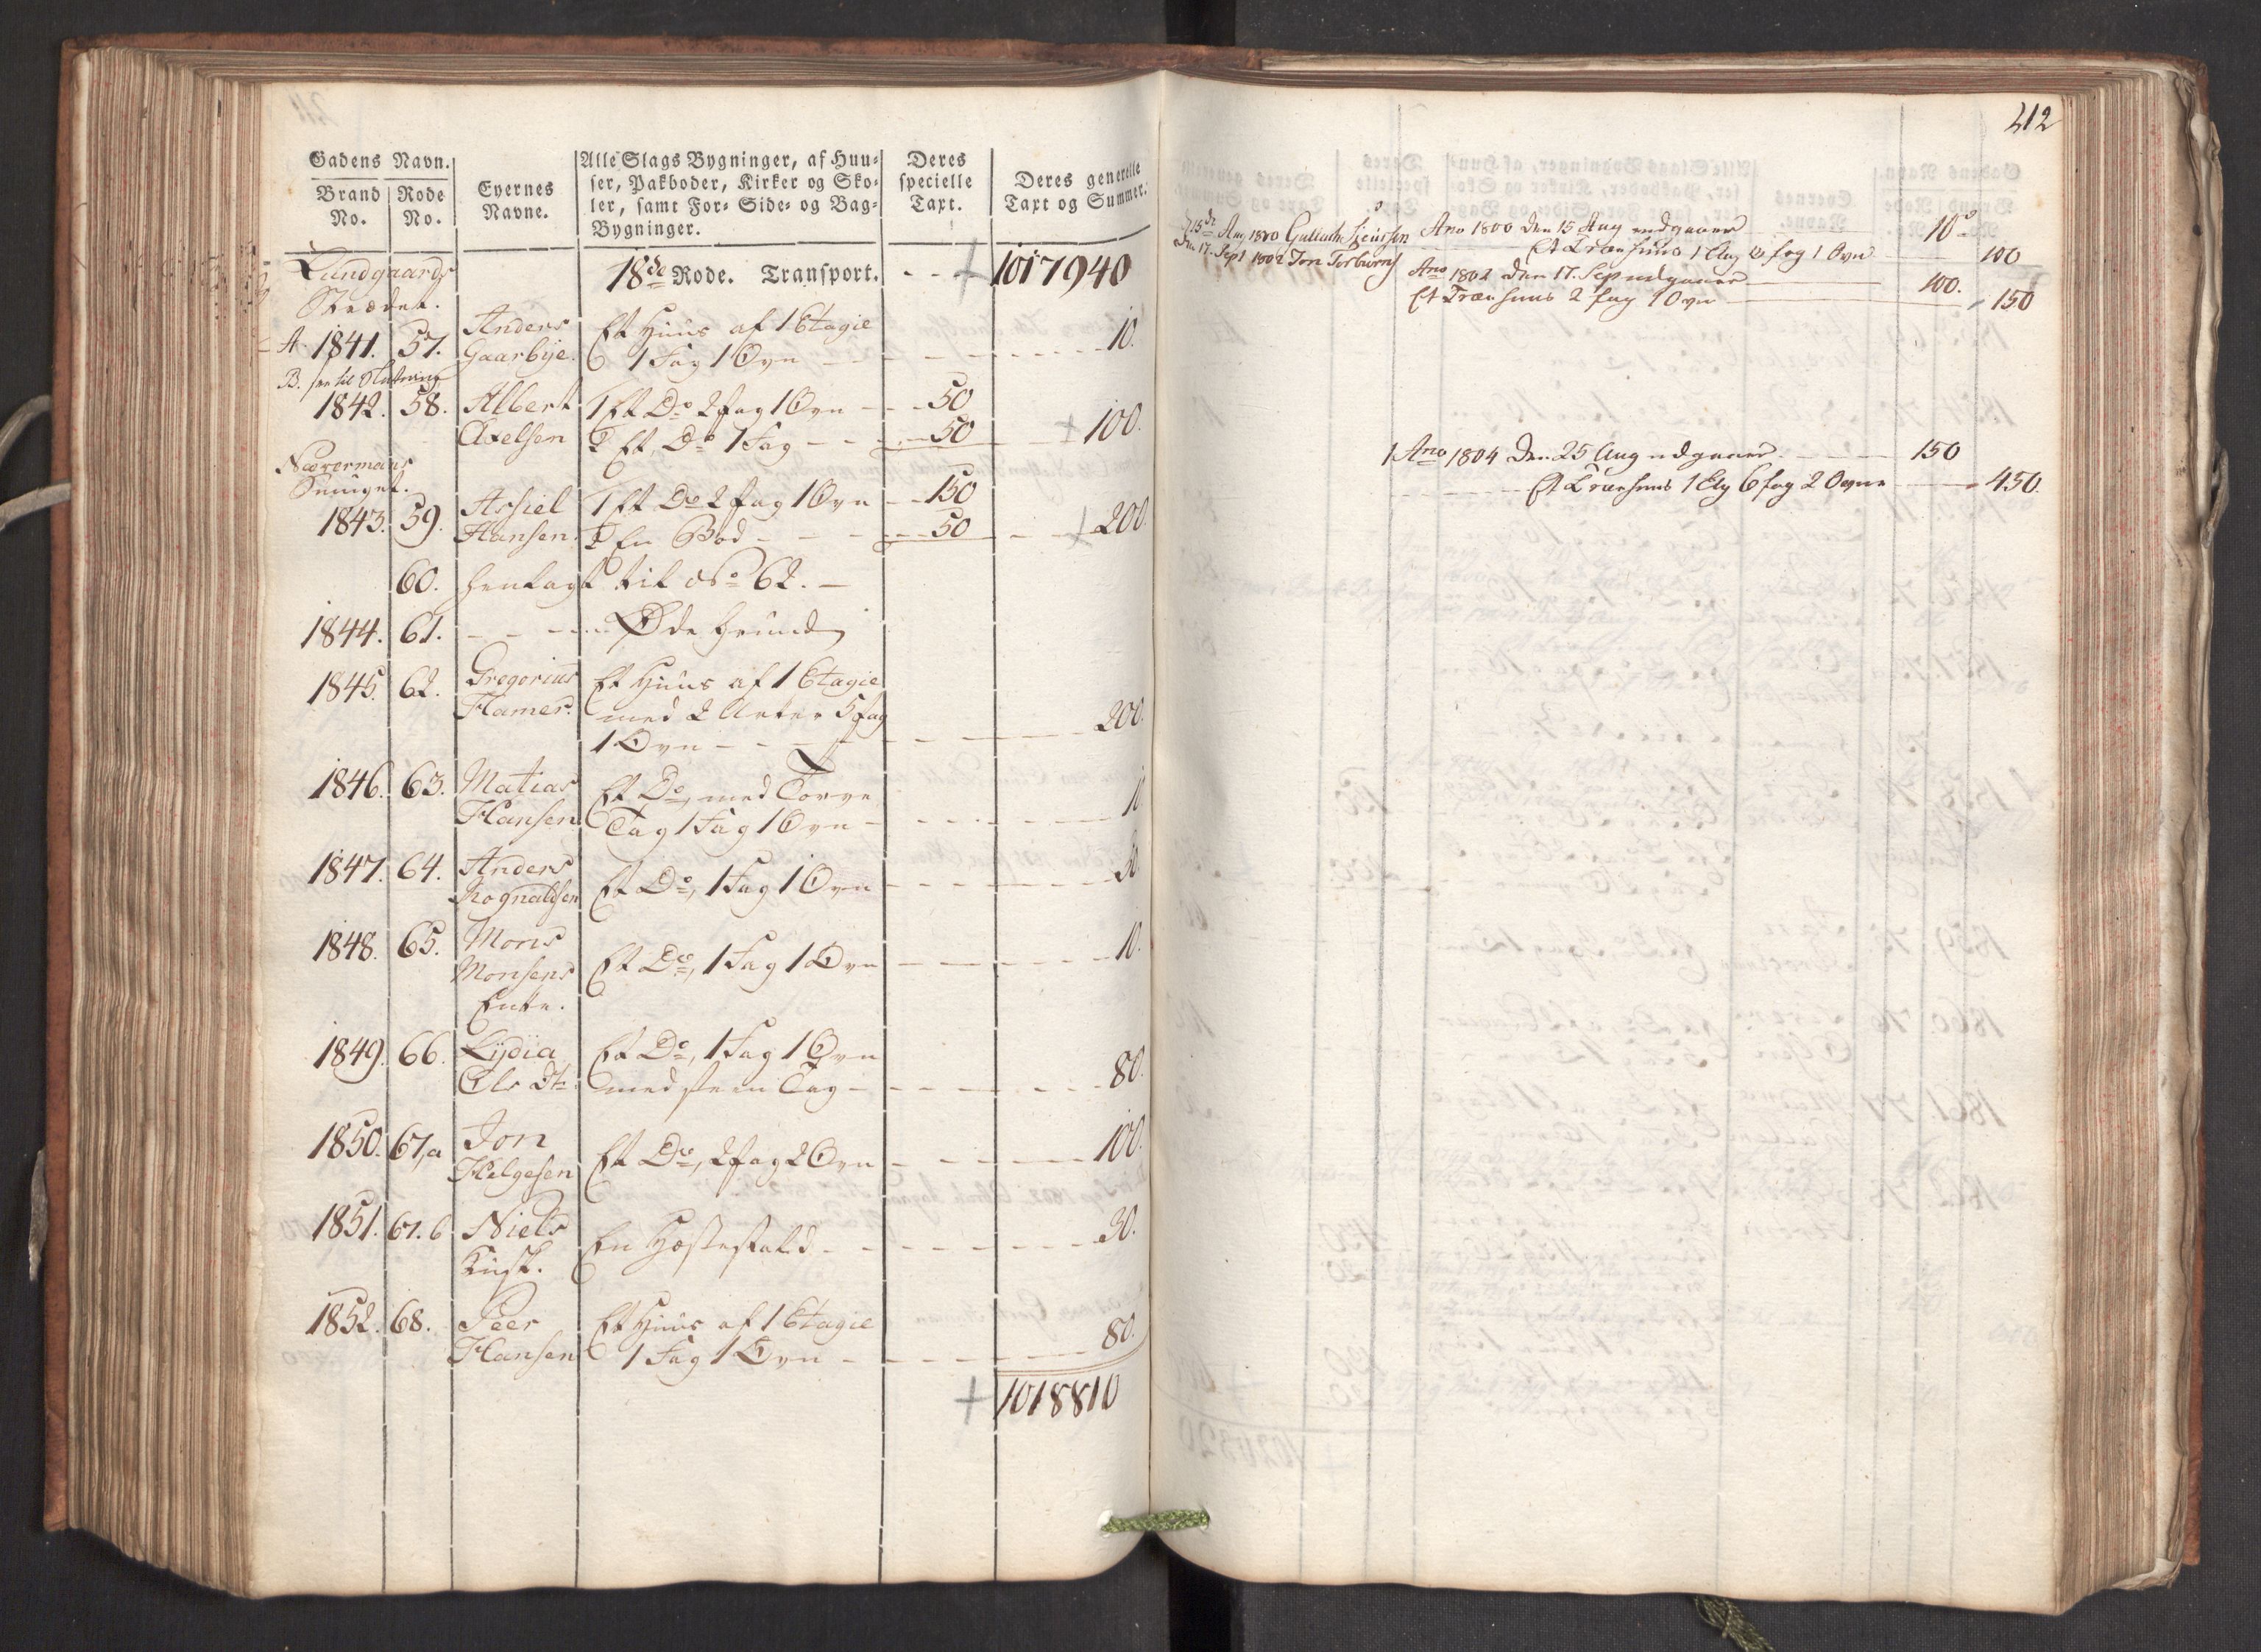 Gadens Navn.
Brand No. Rode No. Eyernes Navne. Alle Slags Bygninger, af Huu-
ser, Pakboder, Kirker og Sko-
ler, samt For- Side- og Bag-
Bygninger.
Deres specielle Taxt.
Deres generelle Taxt og Summer.
Lundgaards Strædet. 18de Rode. Transport. - - 1017940
A 1841. 57. Anders Et Huus af 1 Etagie
Gaarbye. 1 Fag 1 Ovn - - - 10.
B. see til Slutning
1842. 58. Albert 1 Et Do 2 fag 1 Ovn - - 50
Axelsen 2 Et Do 1 Fag - - - 50 - 100.
Smuget.
1843. 59. Assiel 1 Et Do 2 fag 1 Ovn - 150
Hansen. 2 En Bod - - - 50 - 200.
60. henlagt til No 62. -
1844. 61. - - - Øde Grund
1845. 62. Gregorius Et Huus af 1 Etagie
Hamer. med 2 5 fag
1 Ovn - - - 200.
1846. 63. Matias Et Do, med Torve
Hansen Tag 1 Fag 1 Ovn - - - 10
1847. 64. Anders
Rognaldsen Et Do, 1 Fag 1 Ovn - - - 30.
1848. 65. Mons
Monsens Et Do, 1 Fag 1 Ovn - - - 10.
Enke.
1849. 66. Lydia Et Do, 1 Fag 1 Ovn
Ols Dtr. med steen Tag - - - 80.
1850. 67,a Jon
Helgesen Et Do, 2 fag 2 Ovn - - - 100.
1851. 67.b Niels
Kusk. En Hestestald - - - 30.
1852. 68. Peer Et Huus af 1 Etagie
Hansen 1 Fag 1 Ovn - - - 80.
1018810
412
d 15de Aug 1800 Gullach Ano 1800 den 15 Aug udgaaer 10
Et Træehuus 1 Etg fag 1 Ovn 100
Den 17. Sept 1802 Jon Torbiørns Ano 1802 den 17. Sep udgaaer 100.
Et Træehuus 2 fag 1 Ovn 150
1 Ano 1804 den 25 Aug udgaaer. 150
Et Træehuus 1 Etg 6 fag 2 Ovne 450.